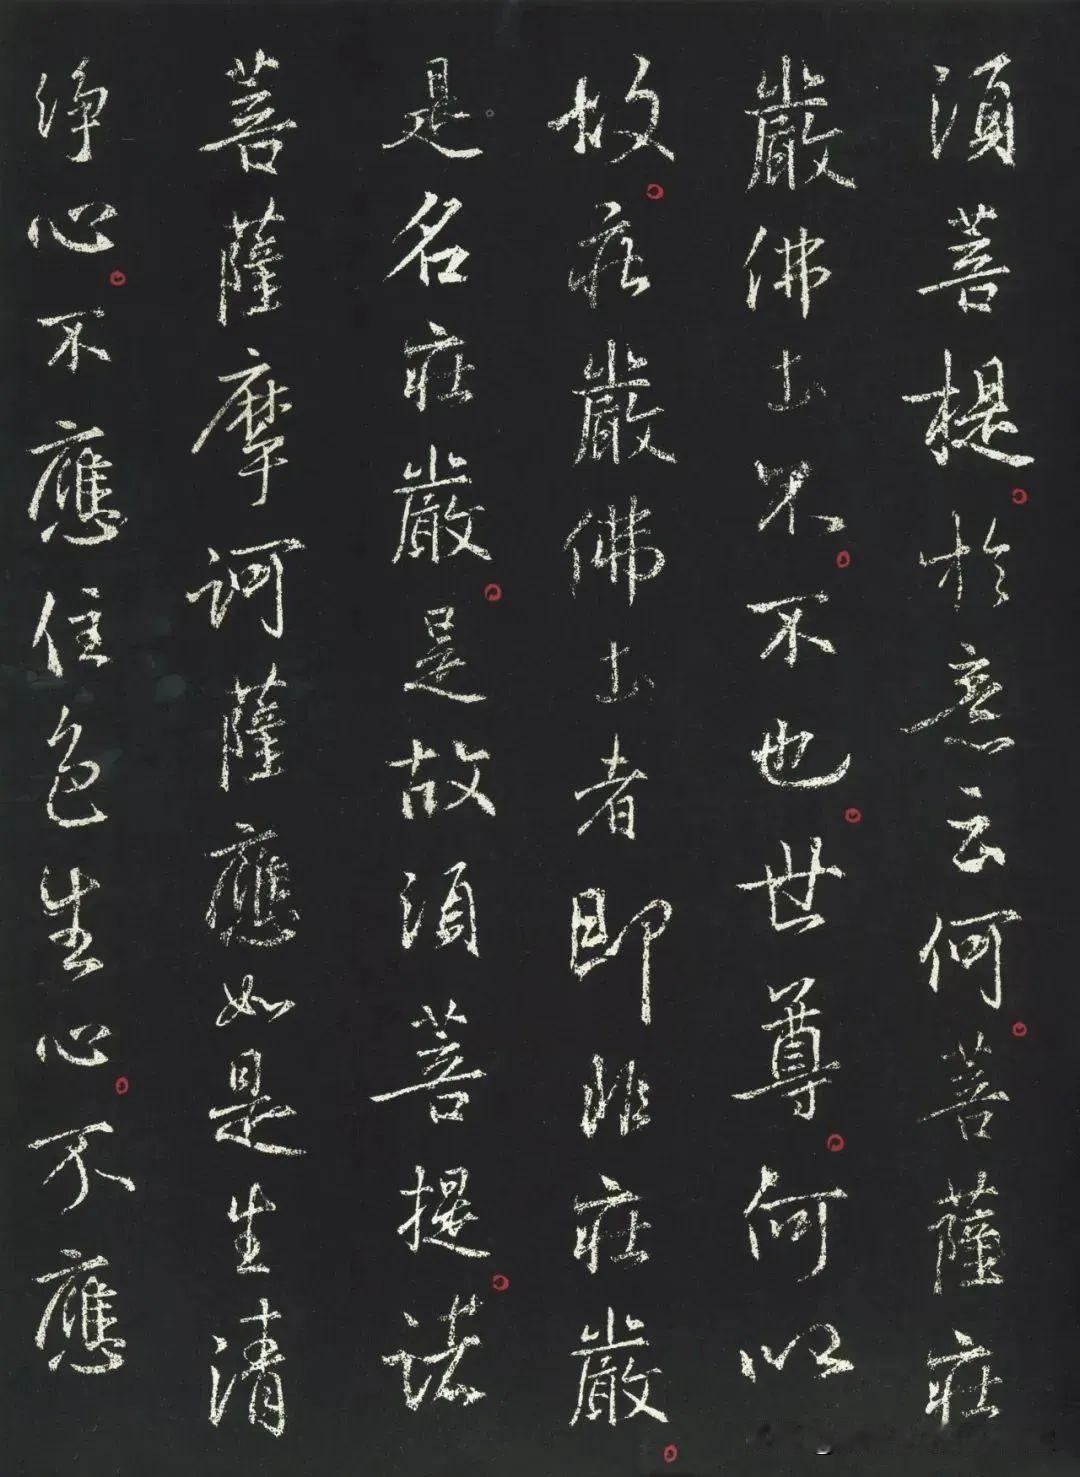 須菩提。於意云何。菩薩莊
嚴佛土不。不也。世尊。何以
故。莊嚴佛土者即非莊嚴。
是名莊嚴。是故須菩提。諸
菩薩摩訶薩應如是生清
淨心。不應住色生心。不應